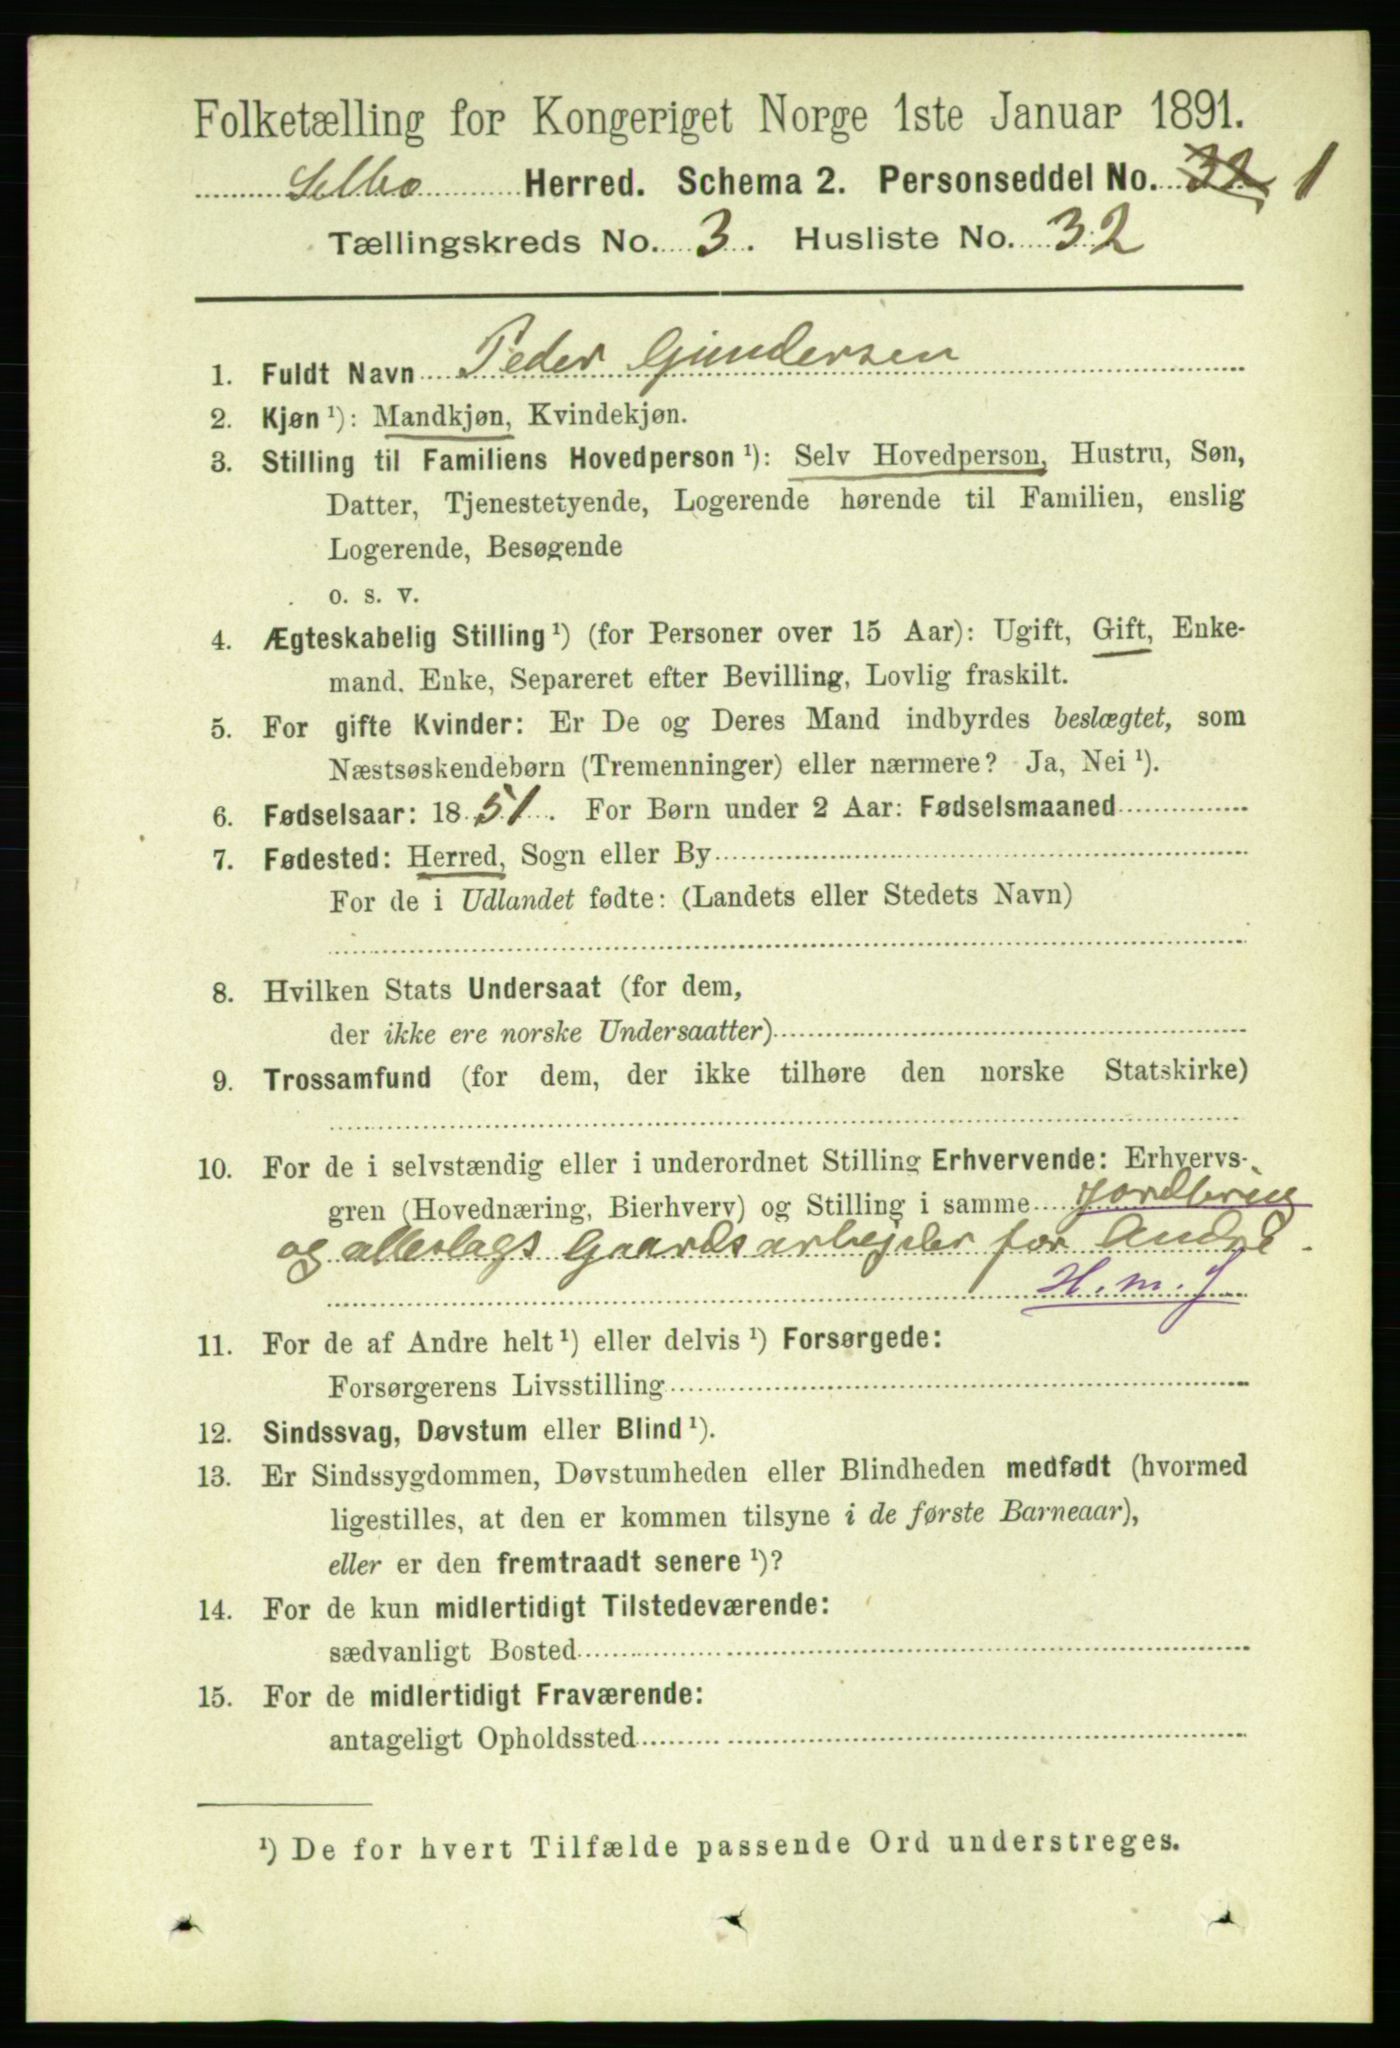 Folketælling for Kongeriget Norge 1ste Januar 1891.
Selbo Herred. Schema 2. Personseddel No. 32 1
Tællingskreds No. 3. Husliste No. 32
1. Fuldt Navn Peder Gundersen
2. Kjøn ¹): Mandkjøn, Kvindekjøn.
3. Stilling til Familiens Hovedperson ¹): Selv Hovedperson, Hustru, Søn,
Datter, Tjenestetyende, Logerende hørende til Familien, enslig
Logerende, Besøgende
o. s. v.
4. Ægteskabelig Stilling ¹) (for Personer over 15 Aar): Ugift, Gift, Enke-
mand. Enke, Separeret efter Bevilling, Lovlig fraskilt.
5. For gifte Kvinder: Er De og Deres Mand indbyrdes beslægtet, som
Næstsøskendebørn (Tremenninger) eller nærmere? Ja, Nei ¹).
6. Fødselsaar: 1851. For Børn under 2 Aar: Fødselsmaaned
7. Fødested: Herred, Sogn eller By
For de i Udlandet fødte: (Landets eller Stedets Navn)
8. Hvilken Stats Undersaat (for dem,
der ikke ere norske Undersaatter)
9. Trossamfund (for dem, der ikke tilhøre den norske Statskirke)
10. For de i selvstændig eller i underordnet Stilling Erhvervende: Erhvervs-
gren (Hovednæring, Bierhverv) og Stilling i samme Jordbrug
og alleslags Gaardsarbejder for Andre.
H. m. J
11. For de af Andre helt ¹) eller delvis ¹) Forsørgede:
Forsørgerens Livsstilling
12. Sindssvag, Døvstum eller Blind ¹).
13. Er Sindssygdommen, Døvstumheden eller Blindheden medfødt (hvormed
ligestilles, at den er kommen tilsyne i de første Barneaar),
eller er den fremtraadt senere ¹)?
14. For de kun midlertidigt Tilstedeværende:
sædvanligt Bosted
15. For de midlertidigt Fraværende:
antageligt Opholdssted
¹) De for hvert Tilfælde passende Ord understreges.